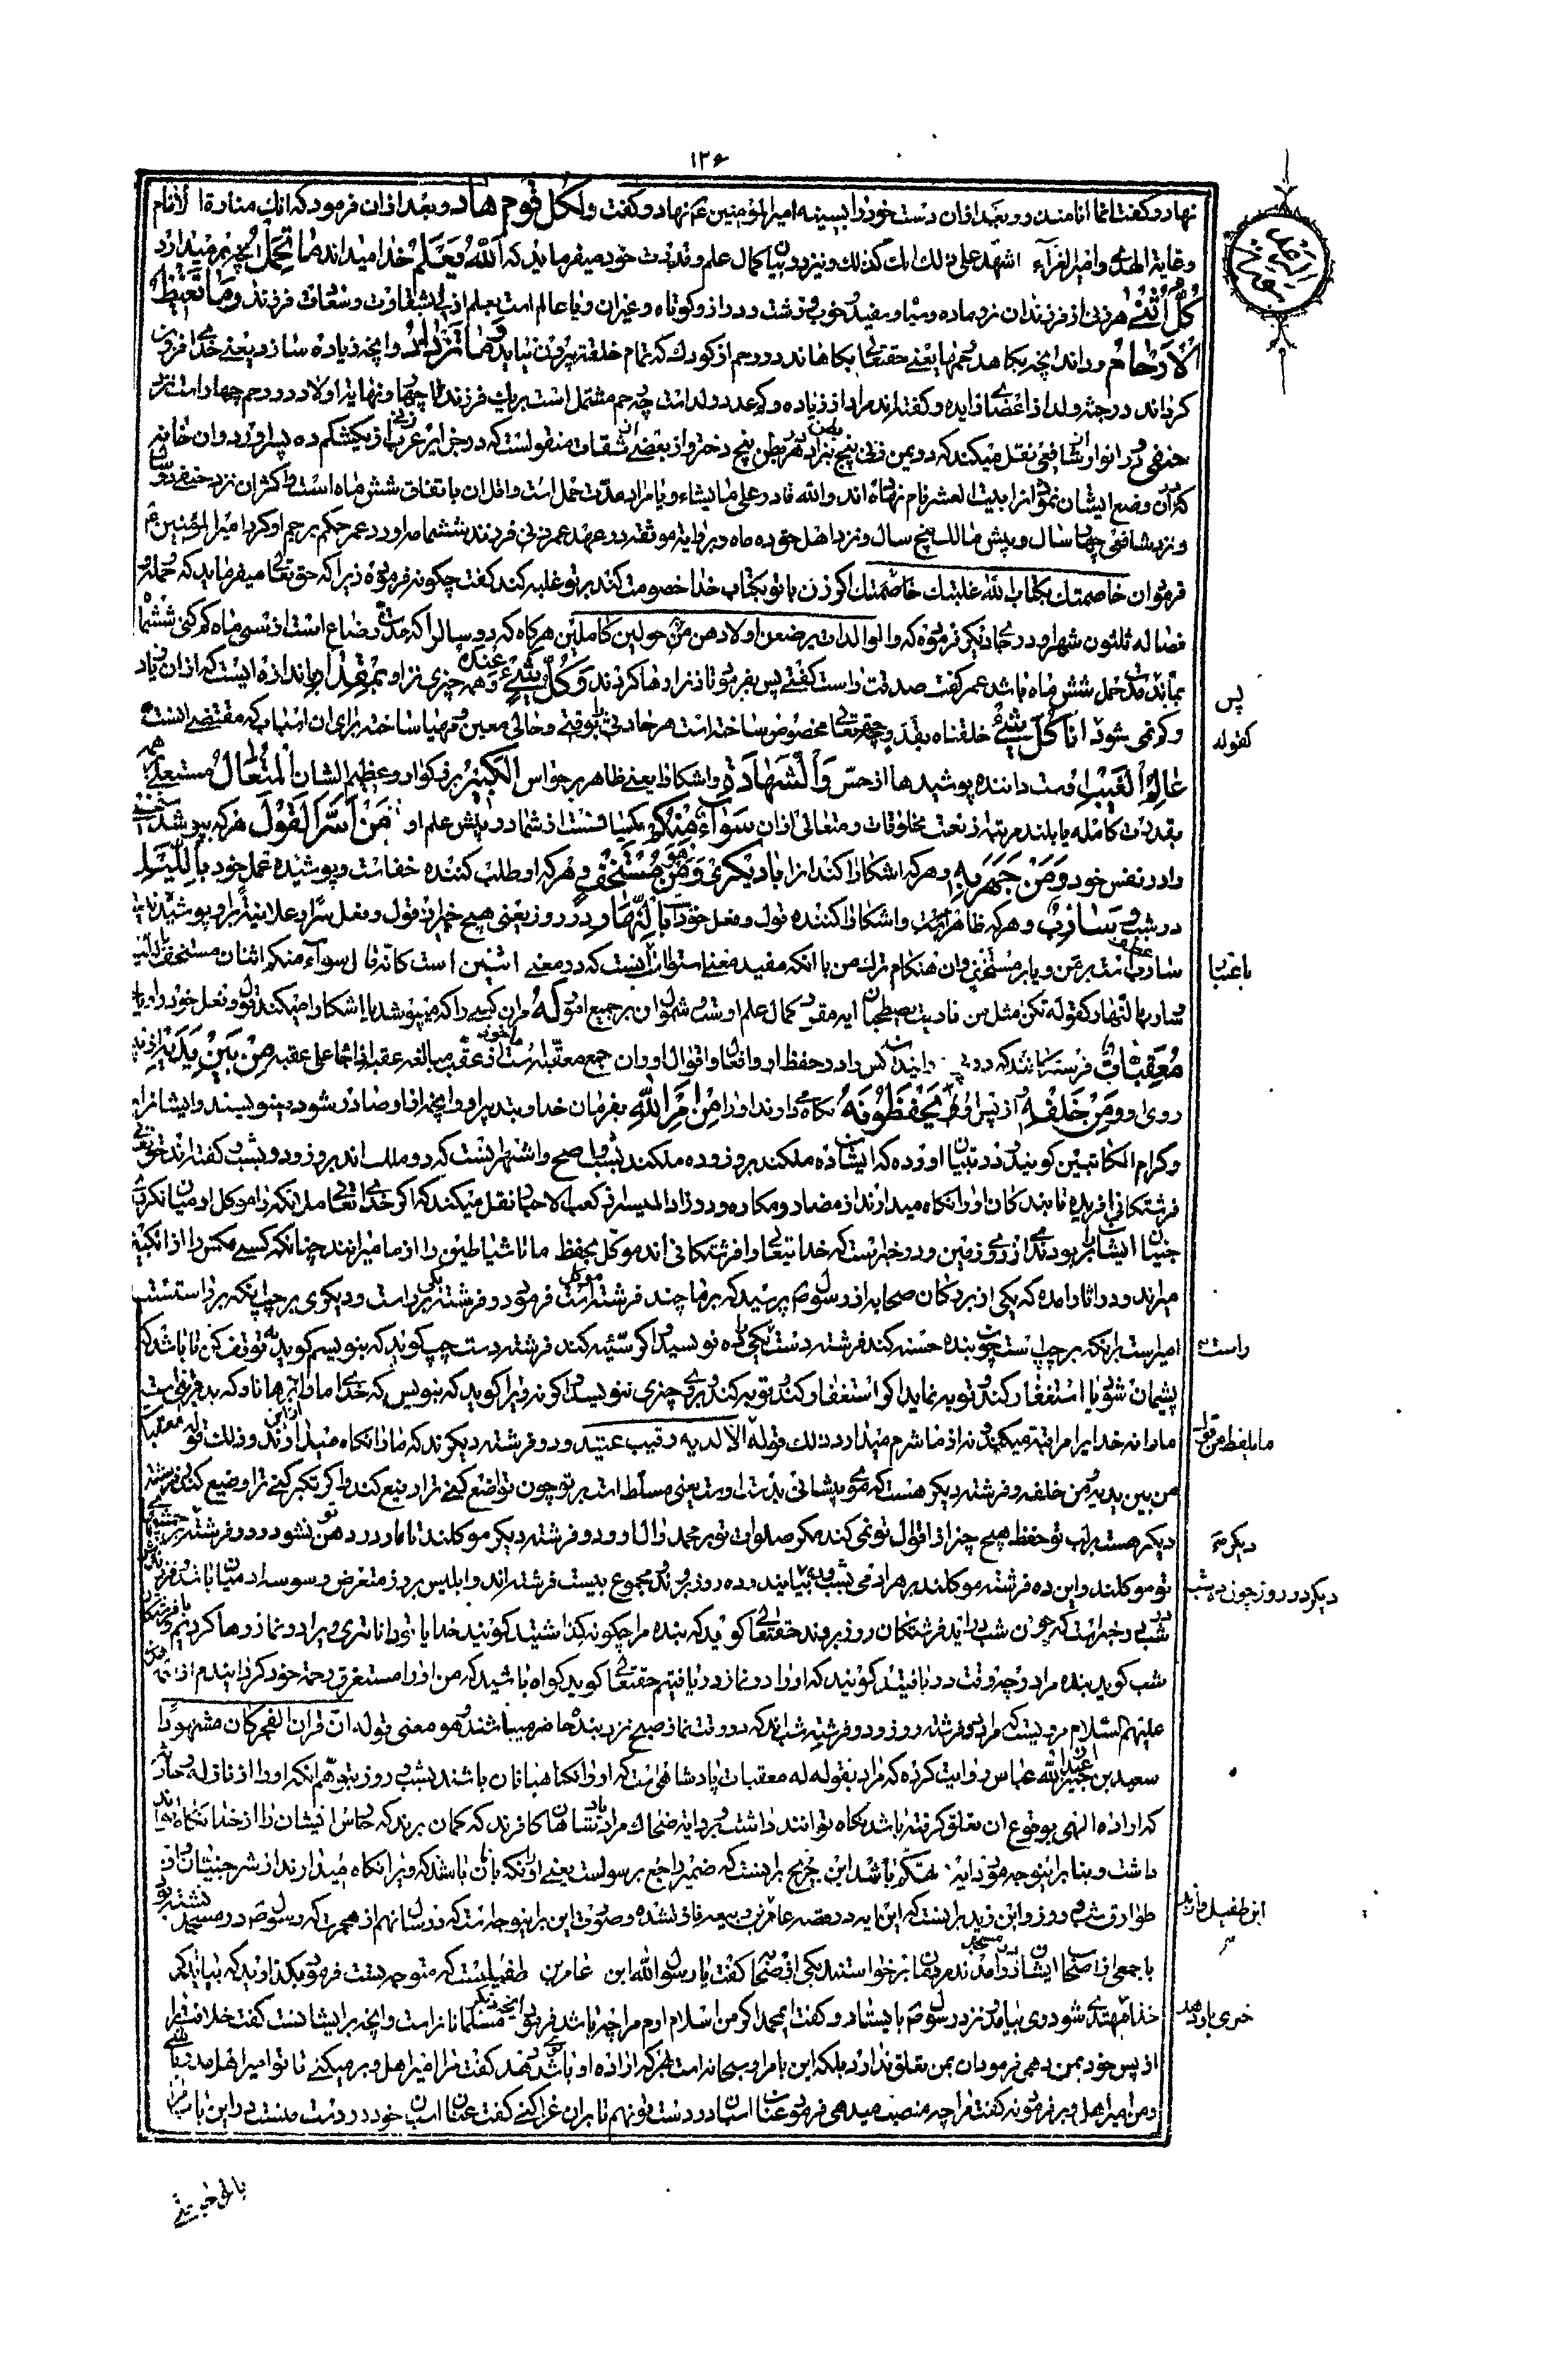 ۱۲۶
نهاد و گفت انما انا منذر و بعد ازان دست خود را بسینه امیر المؤمنین ع نهاد و گفت ولکل قوم هاد و بعد ازان فرمود که انک منارة الانام
و غایة الهدی و امیر القرآء اشهد علی ذلک انک کذلک و نیز در بیان کمال علم و قدرت خود میفرماید که الله یعلم خدا میداند ما تحمل انچیزیرا که بر میدارد
کل انثی هر زنی از فرزندان نر و ماده و سیاه و سفید و خوب و زشت و دراز و کوتاه و غیر ان و یا عالم است بعلم ازلی بشقاوت و سعادت فرزند و ما تغیض
الارحام و داند انچه بکاهد رحمها یعنی حقتعالی بکاهاند در رحم از کودک که تمام خلقت بیرون نیاید و ما تزداد و انچه زیاده سازد یعنی خدای افزون
گرداند در جثه ولد از اعضای زایده و گفته‌اند مراد از زیاده و کم عدد ولد است چه رحم مشتمل است بر یک فرزند تا چهار و نهایة اولاد در رحم چهار است نزد
حنفی و در انوار از شافعی نقل میکند که در یمن زنی پنج بطن بزاد در هر بطن پنج دختر و از بعضی ثقات منقولست که در جزایر عرب زنی از یکشکم ده پسر اورد و ان خانه
که دران وضع ایشان نموده انرا بیت العشر نام نهاده‌اند والله قادر علی ما یشاء و یا مراد مدت حمل است و اقل ان باتفاق شش ماه است و اکثر ان نزد حنفی دو سال
و نزد شافعی چهار سال و پیش مالک پنج سال و نزد اهل حق ده ماه و بروایة موثقه در عهد عمر زنی فرزند ششماهه اورد عمر حکم برجم او کرد امیر المؤمنین ع
فرمود ان خاصمتک بکتاب الله غلبتک خاصمتک اگر زن با تو بکتاب خدا خصومت کند بر تو غلبه کند گفت چگونه فرمود زیرا که حق تعالی میفرماید که حمله و
فصاله ثلثون شهرا و در جای دیگر فرموده که والوالدات یرضعن اولادهن حولین کاملین هرگاه که دو سال را که مدت رضاع است از سی ماه کم کنی ششماه
بماند پس مدت حمل شش ماه باشد عمر گفت صدقت راست گفتی پس بفرمود تا زنرا رها کردند و کل شیء عنده و همه چیزی نزد او بمقدار باندازه ایست که ازان زیاد
و کم نمی شود کقوله انا کل شیء خلقناه بقدر و حقتعالی مخصوص ساخته است هر حادثی بوقتی و حالی معین و مهیا ساخته برای ان اسباب که مقتضی انست
عالم الغیب اوست داننده پوشیدها از حس والشهادة و اشکارا یعنی ظاهر بر حواس الکبیر بزرگوار و عظیم الشان المتعال مستعلی بر همه
بقدرت کامله یا بلند مرتبه از نعت مخلوقات و متعالی ازان سواء منکم یکسان است از شما در پیش علم او من اسر القول هر که بپوشد سخن
را در نفس خود و من جهر به و هر که اشکارا کند انرا با دیگری و من هو مستخف و هر که او طلب کننده خفاست و پوشیده عمل خود باللیل
در شب و سارب و هر که ظاهرست و اشکارا کننده قول و فعل خود را بالنهار در روز یعنی هیچ خبر ازان قول و فعل سرا و علانیة برو پوشیده نیست
سارب عطف است بر من و یا بر مستخف و ان هنگام ترک من باعتبار انکه مفید معنی استواءست اینست که در معنی اثنین است کانه قال سواء منکم اثنان مستخف باللیل
و سارب بالنهار کقوله نکن مثل من یا ذئب یصطحبان ایه مقرر کمال علم اوست و شمول ان بر جمیع امور له مران کسی را که میپوشد یا اشکارا میکند قول و فعل خود را
معقبات فرشتگانند که در پی داینده کس در حفظ او و افعال و اقوال او و ان جمع معقبه است ماخوذ از عقب مبالغه عقب اذا جاء علی عقبه من بین یدیه از پیش
روی او و من خلفه از پس او یحفظونه نگاه می دارند او را من امر الله بفرمان خدا و بتدبیر او و انچه ازو صادر شود مینویسند و ایشانرا
و کرام الکاتبین گویند در تبیان اورده که ایشان ده ملکند بروز و ده ملکند بشب و اصح و اشهر اینست که دو ملک‌اند بروز و دو بشب گفته‌اند حق تعالی
فرشتگانی افریده تا بندگان او را نگاه میدارند از مضار و مکاره و در زاد المسیر از کعب الاحبار نقل میکند که اگر خدای تعالی ملائکه را موکل ادمیان نکردی
جنیان ایشان را بربودندی از روی زمین و در خبرست که خدایتعالی را فرشتگانی‌اند موکل بحفظ ما تا شیاطین را از ما میرانند چنانکه کسی مگس را از انگبین
میراند و در اثار امده که یکی از بزرگان صحابه از رسول ص پرسید که بر ما چند فرشته موکل است فرمود دو فرشته یکی بر راست و دیگری بر چپ انکه بر راستست
امیرست بر انکه بر چپ است چون بنده حسنه کند فرشته دست راست یکی را ده نویسد و اگر سیئه کند فرشته دست چپ گوید که بنویسم گوید نه توقف کن تا باشد که
پشیمان شود یا استغفار کند و توبه نماید اگر استغفار کند و توبه کند بر وی چیزی ننویسد و اگر نه ویرا گوید که بنویس که خدای ما را از او برهاناد که بد قرینی است
ما را نه خدایرا مراقبة میکند و نه از ما شرم میدارد ذلک قوله ما یلفظ من قول الا لدیه رقیب عتید و دو فرشته دیگرند که ما را نگاه میدارند و ذلک قوله له معقبات
من بین یدیه و من خلفه و فرشته دیگر هست که موی پیشانی بدست اوست یعنی مسلط است بر تو چون تواضع کنی ترا رفیع کند و اگر تکبر کنی ترا وضیع کند و فرشته
دیگر هست بر لب تو حفظ هیچ چیز از اقوال تو نمی کند مگر صلوات تو بر محمد و ال او و دو فرشته دیگر موکلند تا مار در دهن تو نشود و دو فرشته بر چشمهای
تو موکلند و این ده فرشته موکلند بر هر ادمی بشب ده بیایند و ده روز بروند مجموع بیست فرشته‌اند و ابلیس بروز متعرض وسوسه ادمیان باشد و فرزندانش
شب در خبر است که چون شب در اید فرشتگان روز بروند حقتعالی گوید که بنده مرا چگونه گذاشتید گویند خدایا تو داناتری ویرا در نماز رها کردیم و با فرشتگان
شب گوید بنده مرا در چه وقت دریافتید گویند که او را در نماز دریافتیم حقتعالی گوید گواه باشید که من او را مستغرق رحمة خود گردانیدم از ائمه
علیهم السلام مرویست که مراد دو فرشته روز و دو فرشته شب‌اند که در وقت نماز صبح نزد بنده حاضر میباشند و هو معنی قوله ان قران الفجر کان مشهودا
سعید بن جبیر از عبد الله عباس روایت کرده که مراد بقوله له معقبات پادشاهی است که او را نگاهبانان باشند بشب و روز بتوهم انکه او را از نازله و حادثه
که اراده الهی بوقوع ان تعلق گرفته باشد نگاه توانند داشت و بروایة ضحاک مراد پادشاهان کافرند که گمان برند که حراس ایشان را از خدا نگاه توانند
داشت و بنا برینوجه مؤدای ایه تهکم باشد ابن جریج برانست که ضمیر راجع برسولست یعنی او را ملائکه باشند که ویرا نگاه میدارند از شر جنیان و از
طوارق شب و روز و ابن زید برانست که این ایه در قصه عامر بن طفیل و اربد بن ربیعه نازل شده و صورت این برینوجه است که در سال نهم از هجرت که رسول ص در مسجد نشسته بود
با جمعی از اصحاب ایشان در مسجد درامدند مردمان برخواستند یکی از صحابه گفت یا رسول الله این عامر بن طفیلیست که متوجه تست فرمود بگذارید که بیاید اگر
خدا خیری باو دهد مهتدی شود وی بیامد نزد رسول ص بایستاد و گفت ای محمد اگر من اسلام اورم مرا چه باشد فرمود انچه دیگر مسلمانانراست و انچه بر ایشانست گفت خلافت را
از پس خود بمن دهی فرمود ان بمن تعلق ندارد بلکه این بامر او سبحانه است بهر که اراده او باشد دهد گفت مرا امیر اهل وبر میکنی تا تو امیر اهل مدر باشی
و من امیر اهل وبر فرمود نه گفت مرا چه منصب میدهی فرمود عنان اسبان در دست تو نهم تا بران غزا کنی گفت عنان اسبان خود در دست منست در این باب مرا
پس
کقوله
باعتبار
راست
ما یلفظ من قول
دیگر
دیگر در روز چون شب
ابن طفیل و اربد
خیری باو دهد